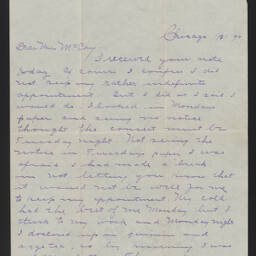 Chicago
Dear Miss McCoy
I received your note
today. Of course I confess I did
not keep my rather indefinite
appointment. But I did as I said I
would do. I looked in Monday
paper and seeing no notice
thought the concert must be
Tuesday night. Not seeing the
notice in Tuesday paper I was
afraid I had made a break
in not letting you know that
it would not be well for me
to keep my appointment. My cold
had the best of me Monday but I
stuck to my work and Monday night
I doctored up on quinine and
so by morning I was